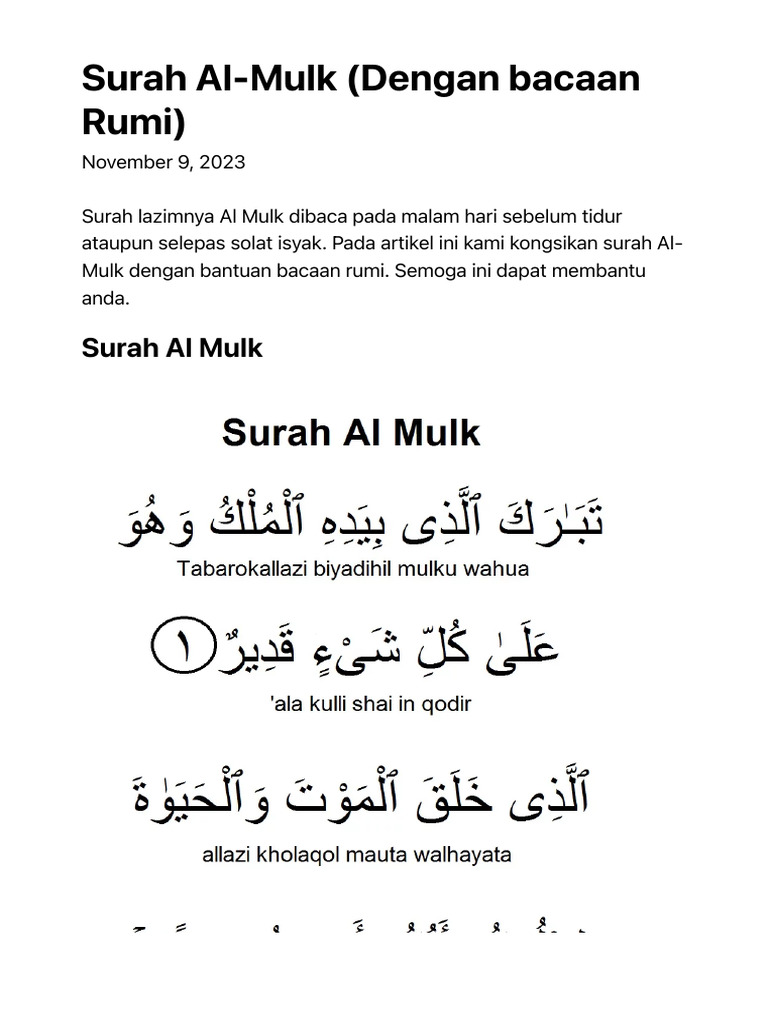 Surah Al-Mulk (Dengan bacaan
Rumi)
November 9, 2023
Surah lazimnya Al Mulk dibaca pada malam hari sebelum tidur
ataupun selepas solat isyak. Pada artikel ini kami kongsikan surah Al-
Mulk dengan bantuan bacaan rumi. Semoga ini dapat membantu
anda.
Surah Al Mulk
Surah Al Mulk
تَبَـٰرَكَ ٱلَّذِى بِيَدِهِ ٱلْمُلْكُ وَهُوَ
Tabarokallazi biyadihil mulku wahua
عَلَىٰ كُلِّ شَىْءٍ قَدِيرٌ ١
'ala kulli shai in qodir
ٱلَّذِى خَلَقَ ٱلْمَوْتَ وَٱلْحَيَوٰةَ
allazi kholaqol mauta walhayata